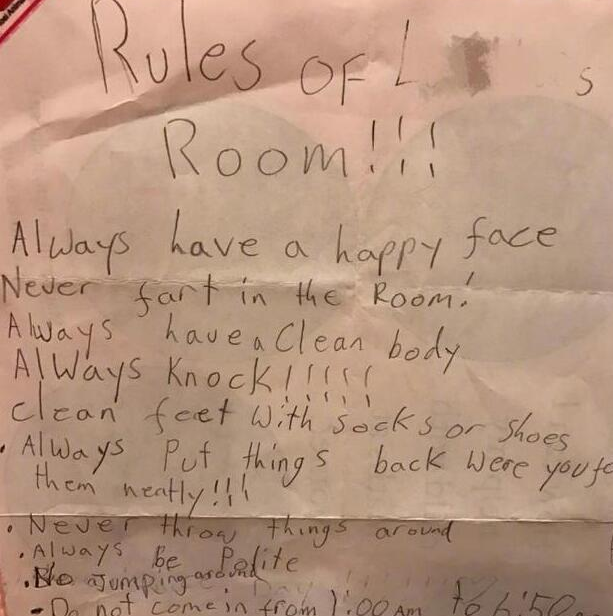 Rules OF L s
Room!!!
Always have a happy face
Never fart in the Room!
Always have a Clean body
AlWays Knock!!!!!
Clean feet With socks or shoes
• Always Put things back Were you
them neatly!!!
• Never throw things around
• Always be Polite
• No Jumping around
- Do not come in from 1:00 Am to 6:50